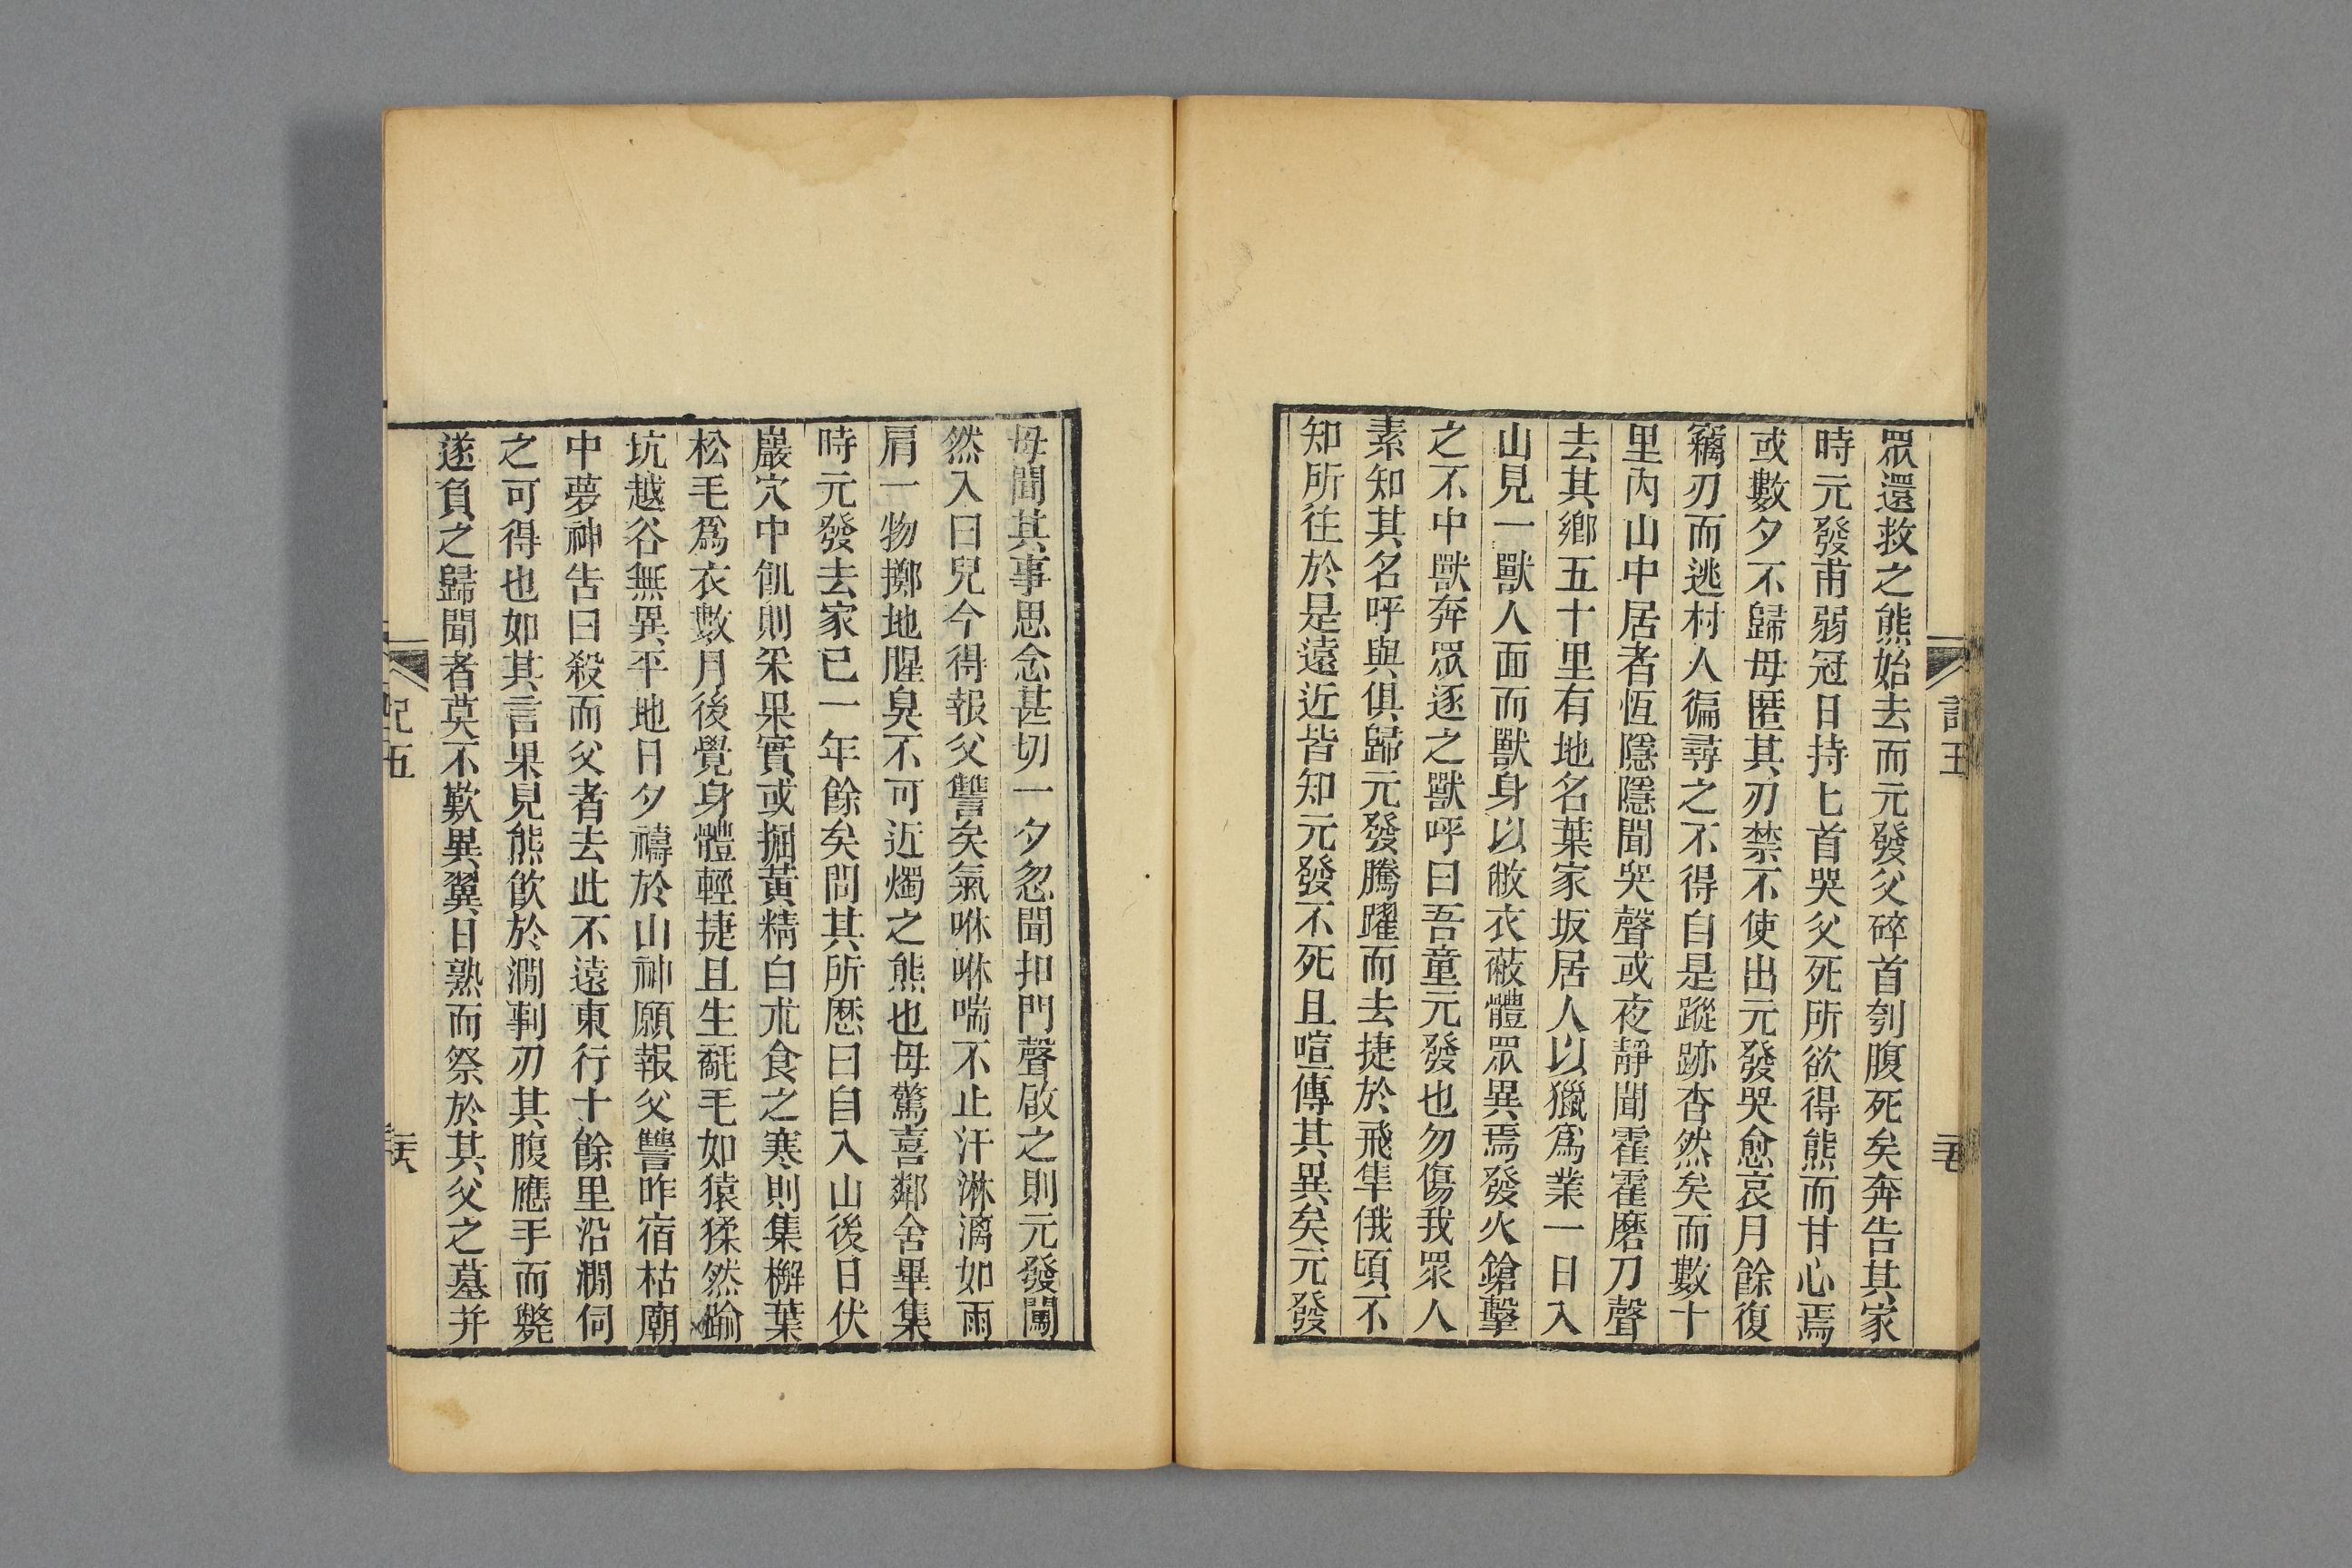 眾還救之熊始去而元發父碎首刳腹死矣奔告其家
時元發甫弱冠日持匕首哭父死所欲得熊而甘心焉
或數夕不歸母匿其刃禁不使出元發哭愈哀月餘復
竊刃而逃村人徧尋之不得自是蹤跡杳然矣而數十
里內山中居者恆隱隱聞哭聲或夜靜聞霍霍磨刀聲
去其鄉五十里有地名葉家坂居人以獵爲業一日入
山見一獸人面而獸身以敝衣蔽體眾異焉發火鎗擊
之不中獸奔眾逐之獸呼曰吾童元發也勿傷我眾人
素知其名呼與俱歸元發騰躍而去捷於飛隼俄頃不
知所往於是遠近皆知元發不死且喧傳其異矣元發
母聞其事思念甚切一夕忽聞扣門聲啟之則元發闖
然入曰兒今得報父讐矣氣咻咻喘不止汗淋漓如雨
肩一物擲地腥臭不可近燭之熊也母驚喜鄰舍畢集
時元發去家已一年餘矣問其所歷曰自入山後日伏
巖穴中飢則采果實或掘黃精白朮食之寒則集檞葉
松毛爲衣數月後覺身體輕捷且生毛如猿猱然踰
坑越谷無異平地日夕禱於山神願報父讐昨宿枯廟
中夢神告曰殺而父者去此不遠東行十餘里沿澗伺
之可得也如其言果見熊飮於澗剚刃其腹應手而斃
遂負之歸聞者莫不歎異翼日熟而祭於其父之墓并
記五